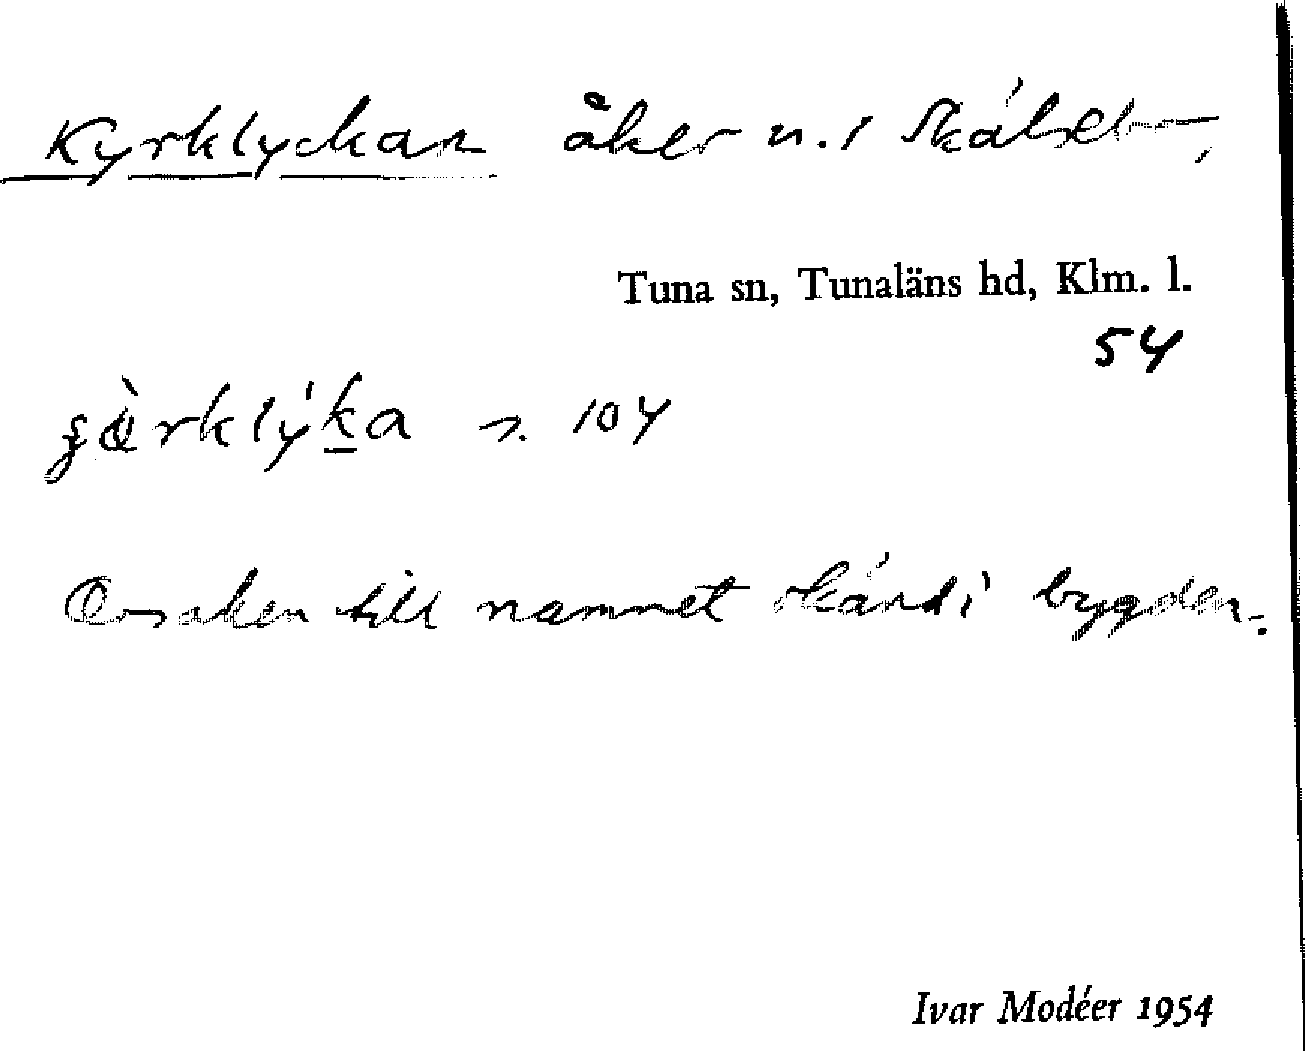 Kyrklyckan åker n. i Skälsebo,
Tuna sn, Tunaläns hd, Klm. l.
54
s. 104
Orsaken till namnet okänd i bygden.
Ivar Modéer 1954